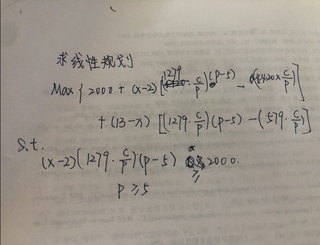 求线性规划
Max { 2000 + (x-2) [(1279·c/p)(p-5) - (6420×c/p)]
+ (13-x) [(1279·c/p)(p-5) - (579·c/p)]
s.t.
(x-2)(1279·c/p)(p-5) ≥ 2000.
p ≥ 5